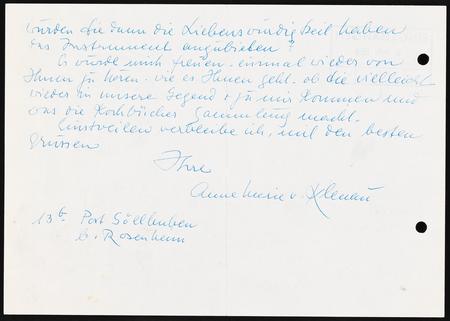 würden Sie dann die Liebenswürdigkeit haben
das Instrument anzubieten?
Es würde mich freuen einmal wieder von
Ihnen zu hören. wie es Ihnen geht. ob Sie vielleicht
wieder in unsere Gegend + zu mir kommen und
was die Kochbücher Sammlung macht.
Einstweilen verbleibe ich, mit den besten
Grüssen
Ihre
Anne Marie v. Klenau
13b Post Söllhuben
b. Rosenheim